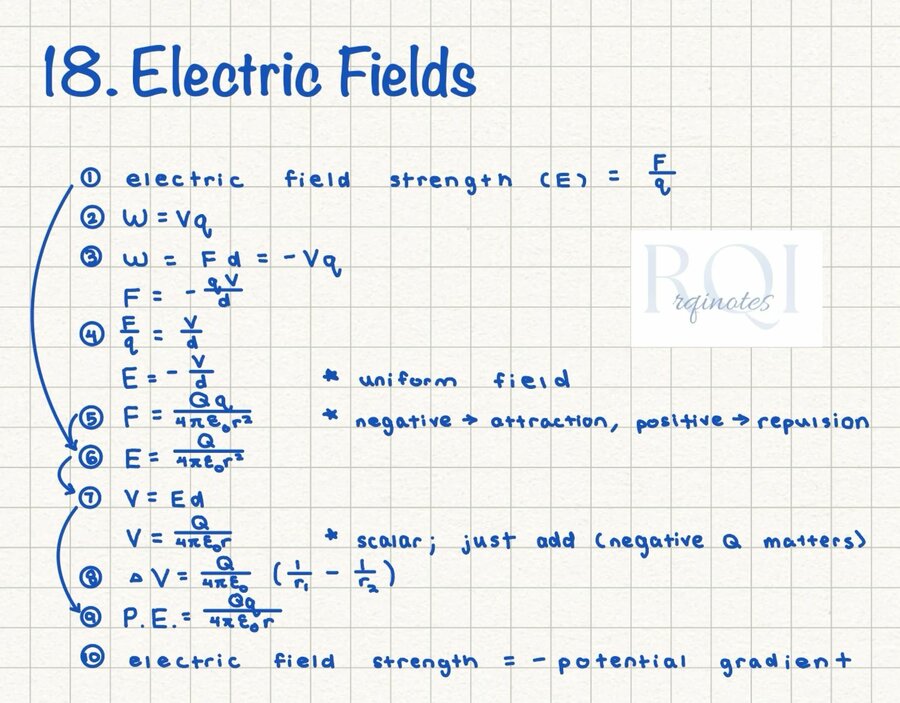 18. Electric Fields
① electric field strength (E) = F/q
② W = Vq
③ W = Fd = -Vq
F = - qV/d
④ F/q = V/d
E = - V/d * uniform field
⑤ F = Qq/4πε₀r² * negative → attraction, positive → repulsion
⑥ E = Q/4πε₀r²
⑦ V = Ed
V = Q/4πε₀r * scalar; just add (negative Q matters)
⑧ △V = Q/4πε₀ (1/r₁ - 1/r₂)
⑨ P.E. = Qq/4πε₀r
⑩ electric field strength = - potential gradient
RQI
rqinotes